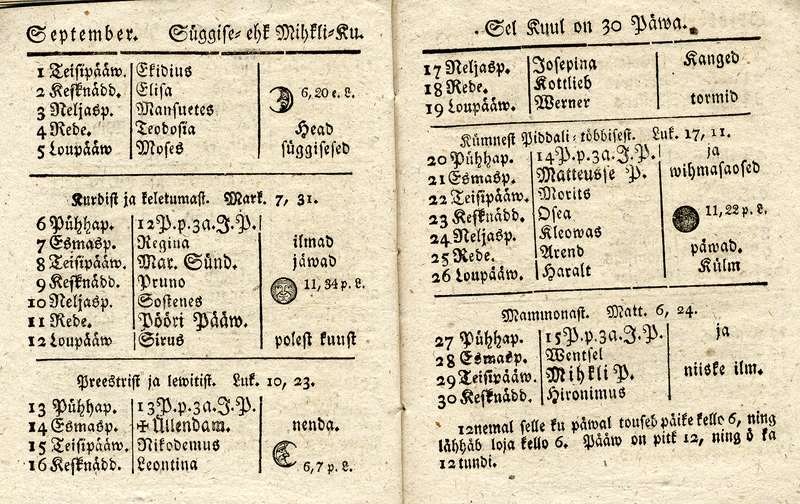 September. Süggise- ehk Mihkli-Ku.
1 Teisipääw. Ekidius
2 Kesknädd. Elisa 6, 20 e. L.
3 Neljasp. Mansuetes
4 Rede. Teodosia Head
5 Loupääw Moses süggisesed
Kurdist ja keletumast. Mark. 7, 31.
6 Pühhap. 12 P. p. 3a. J. P.
7 Esmasp. Regina ilmad
8 Teisipääw. Mar. Sünd. jäwad
9 Kesknädd. Pruno 11, 34 p. L.
10 Neljasp. Sostenes
11 Rede. Pööri Pääw.
12 Loupääw Sirus polest kuust
Preestrist ja lewitist. Luk. 10, 23.
13 Pühhap. 13 P. p. 3a. J. P.
14 Esmasp. ✠ Üllendam. nenda.
15 Teisipääw. Nikodemus
16 Kesknädd. Leontina 6, 7 p. L.
Sel Kuul on 30 Päwa.
17 Neljasp. Josepina Kanged
18 Rede. Kottlieb
19 Loupääw. Werner tormid
Kümnest Piddali-többisest. Luk. 17, 11.
20 Pühhap. 14 P. p. 3a. J. P. ja
21 Esmasp. Matteusse P. wihmasaosed
22 Teisipääw. Morits
23 Kesknädd. Osea 11, 22 p. L.
24 Neljasp. Kleowas
25 Rede. Arend päwad.
26 Loupääw. Haralt Külm
Mammonast. Matt. 6, 24.
27 Pühhap. 15 P. p. 3a. J. P. ja
28 Esmasp. Wentsel
29 Teisipääw. Mihkli P. niiske ilm.
30 Kesknädd. Hironimus
12nemal selle ku päwal touseb päike kello 6, ning
lähhäb loja kello 6. Pääw on pitk 12, ning ö ka
12 tundi.